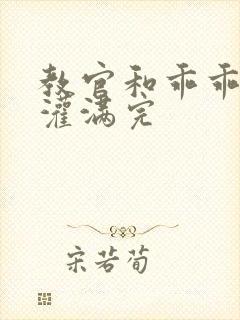 教官和乖乖
灌满完
宋若荀